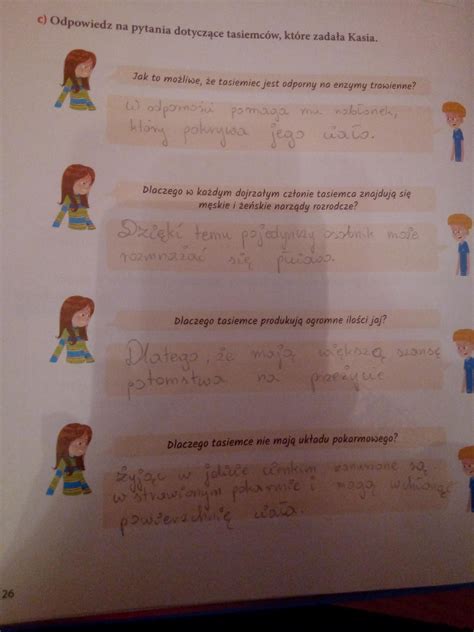 c) Odpowiedz na pytania dotyczące tasiemców, które zadała Kasia.
Jak to możliwe, że tasiemiec jest odporny na enzymy trawienne?
W odporności pomaga mu nabłonek,
który pokrywa jego ciało.
Dlaczego w każdym dojrzałym członie tasiemca znajdują się
męskie i żeńskie narządy rozrodcze?
Dzięki temu pojedynczy osobnik może
rozmnażać się
Dlaczego tasiemce produkują ogromne ilości jaj?
Dlatego, że mają większą szansę
potomstwa na przeżycie
Dlaczego tasiemce nie mają układu pokarmowego?
Żyjąc w jelicie cienkim zanurzone są
w strawionym pokarmie i mogą wchłaniać
powierzchnią ciała.
26